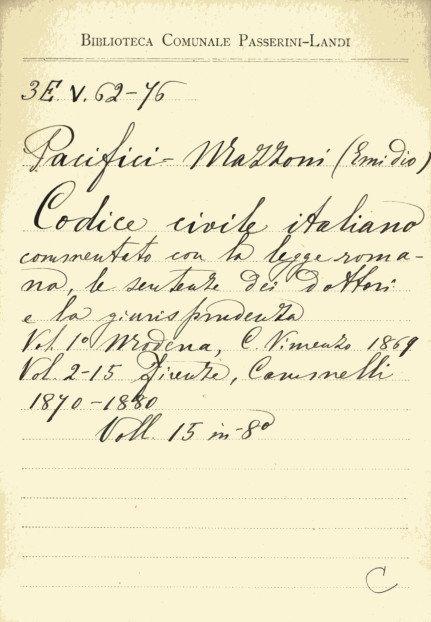 BIBLIOTECA COMUNALE PASSERINI-LANDI
3E. V. 62-76
Pacifici-Mazzoni (Emidio)
Codice civile italiano
commentato con la legge roma-
na, le sentenze dei dottori
e la giurisprudenza
Vol. 1º Modena, C. Vincenzo 1869
Vol. 2-15 Firenze, Cammelli
1870-1880
Voll. 15 in-8º
C